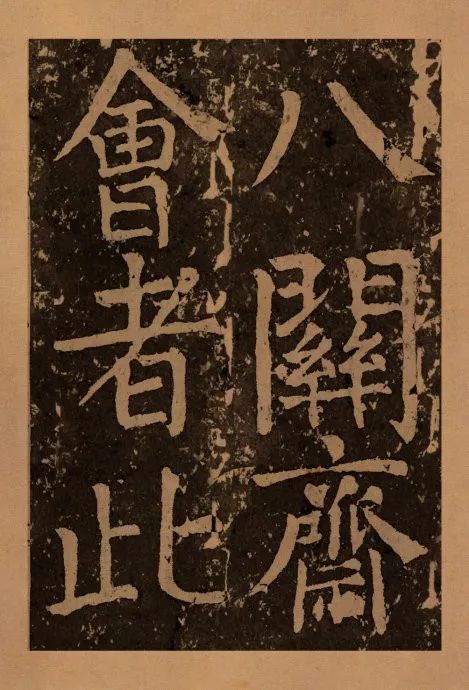 八關齋
會者此